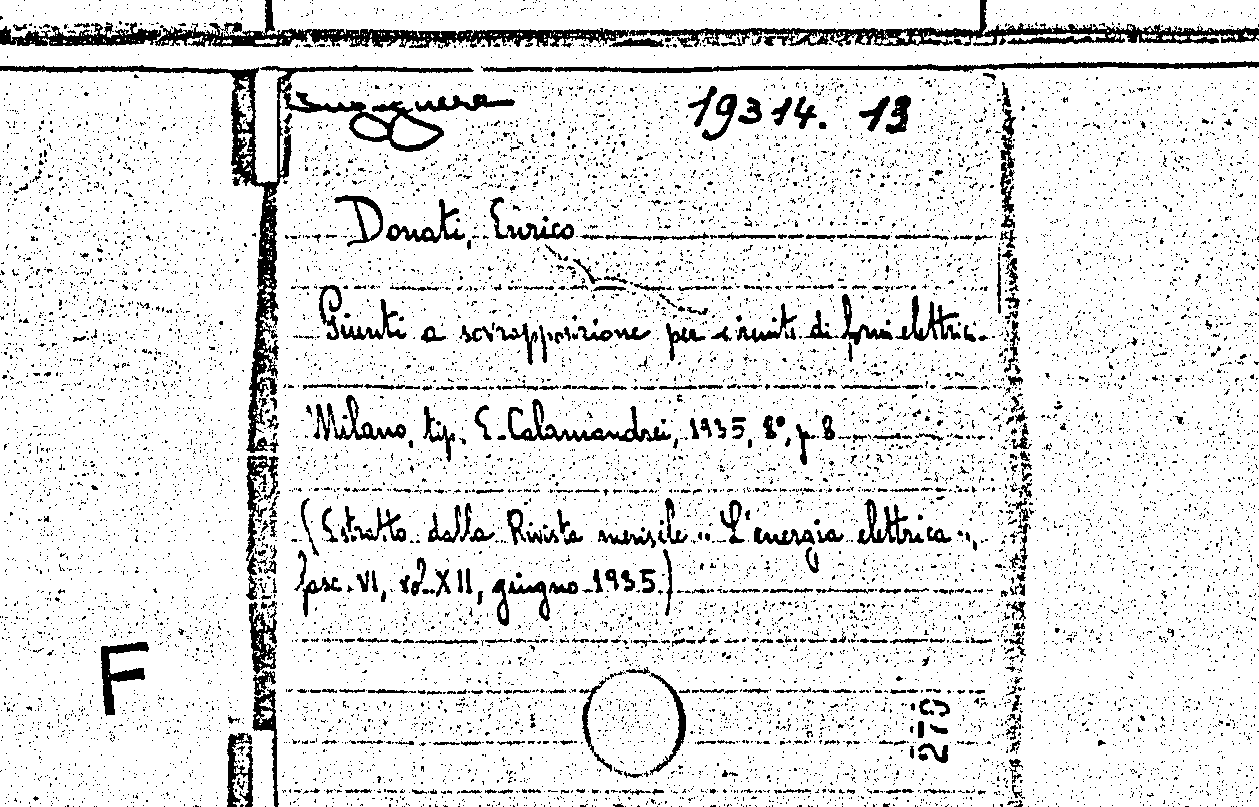 19314. 13
Donati, Enrico
Giunti a sovrapposizione per circuiti di forni elettrici.
Milano, tip. E. Calamandrei, 1935, 8°, p 8
(Estratto dalla Rivista mensile "L'energia elettrica",
fasc. VI, vol. XII, giugno 1935)
F
270